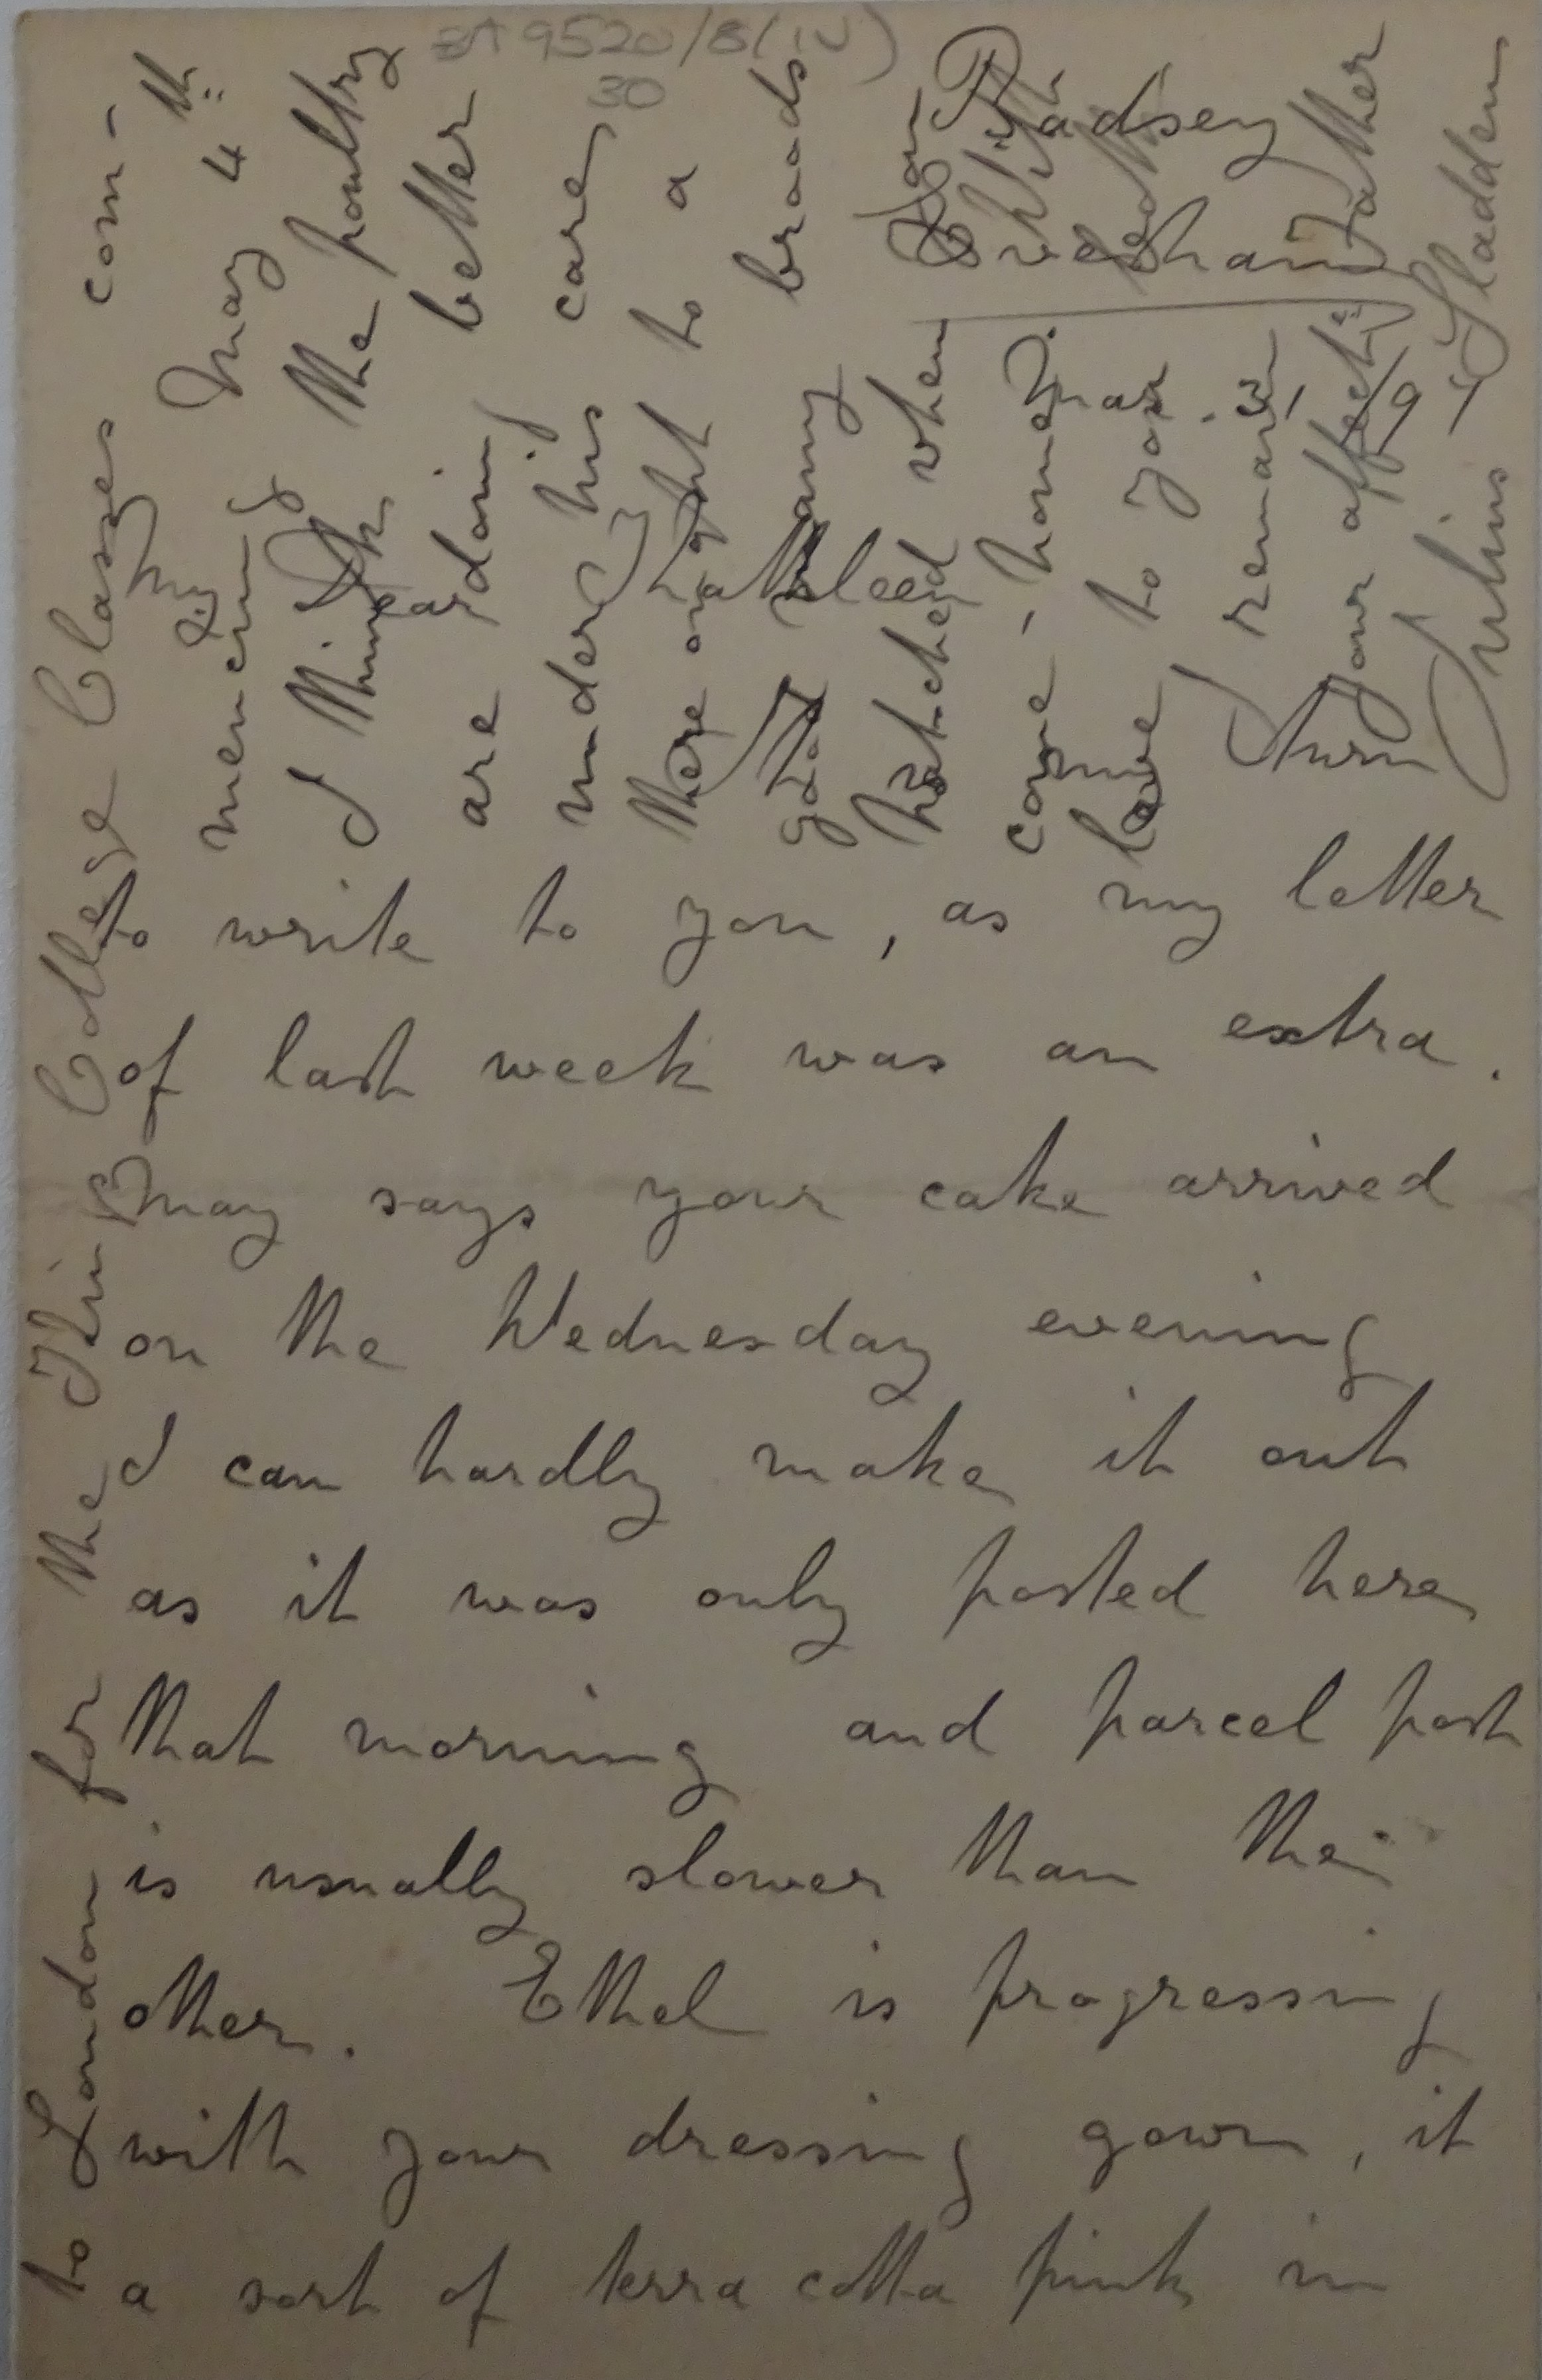 EA 9520/8(iv)
30
Badsey
Evesham
Mar. 3, /91
My
Dear
Kathleen
It is my turn
to write to you, as my letter
of last week was an extra.
May says your cake arrived
on the Wednesday evening
I can hardly make it out
as it was only posted here
that morning and parcel post
is usually slower than the
other. Ethel is progressing
with your dressing gown, it
a sort of terra cotta pink in
to London for the Kings College Classes com-
mencing May 4th
I think the poultry
are doing better
under his care
there ought to a
good many broods
hatched when you
come home. With
love to you both
I remain
your affecte Father
Julius Sladden